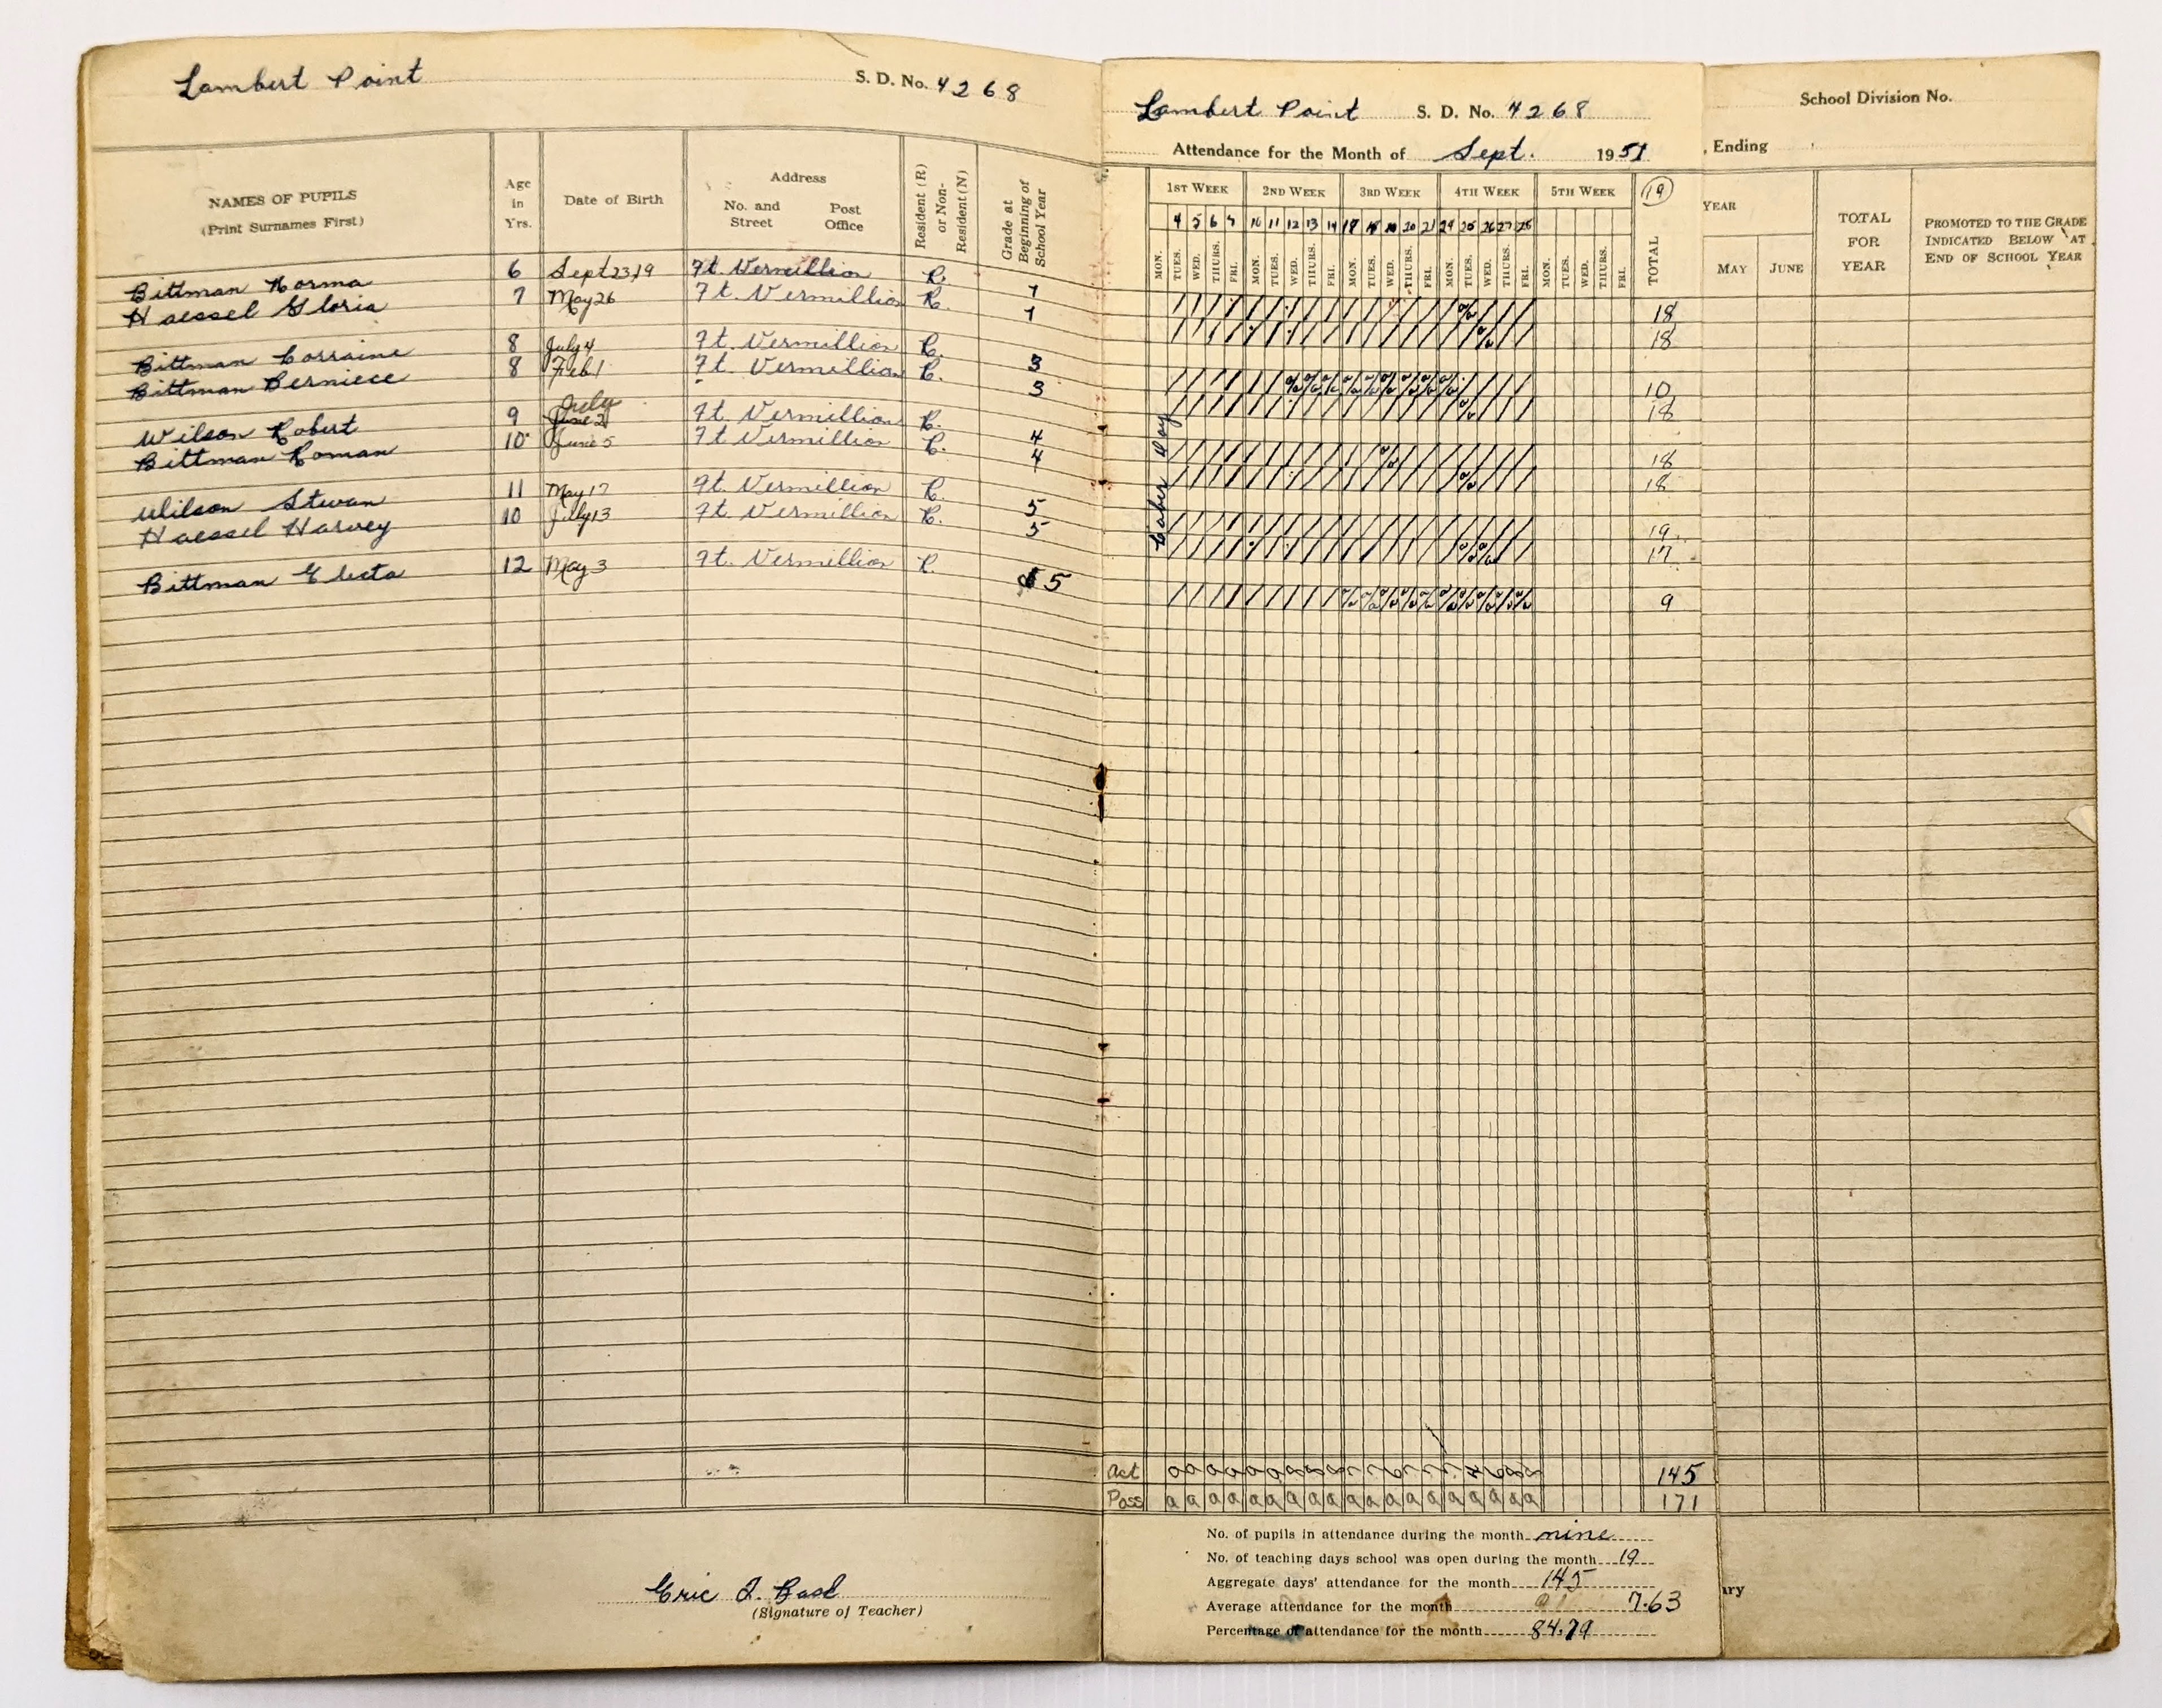 Lambert Point S. D. No. 4268
NAMES OF PUPILS
(Print Surnames First)
Age in Yrs.
Date of Birth
Address
No. and Street Post Office
Resident (R) or Non-Resident (N)
Grade at Beginning of School Year
Bittman Norma 6 Sept 23/9 Ft. Vermillion R. 1
Haessel Gloria 7 May 26 Ft. Vermillion R. 1
Bittman Lorraine 8 July 4 Ft. Vermillion R. 3
Bittman Berniece 8 Feb 1 Ft. Vermillion R. 3
July
Wilson Robert 9 June 2 Ft. Vermillion R. 4
Bittman Roman 10 June 5 Ft Vermillion R. 4
Wilson Stewan 11 May 17 Ft. Vermillion R. 5
Haessel Harvey 10 July 13 Ft. Vermillion R. 5
Bittman Electa 12 May 3 Ft. Vermillion R. 5
Eric J.
(Signature of Teacher)
Lambert Point S. D. No. 4268
Attendance for the Month of Sept. 1951
1ST WEEK 2ND WEEK 3RD WEEK 4TH WEEK 5TH WEEK 19
4 5 6 7 10 11 12 13 14 17 18 19 20 21 24 25 26 27 28
MON. TUES. WED. THURS. FRI. MON. TUES. WED. THURS. FRI. MON. TUES. WED. THURS. FRI. MON. TUES. WED. THURS. FRI. MON. TUES. WED. THURS. FRI. TOTAL
Labor Day
18
18
10
18
18
18
19
17
9
Act 145
Poss 9 9 9 9 9 9 9 9 9 9 9 9 9 9 9 9 9 9 9 171
No. of pupils in attendance during the month nine
No. of teaching days school was open during the month 19
Aggregate days' attendance for the month 145
Average attendance for the month 7.63
Percentage of attendance for the month 84.79
School Division No.
Ending
YEAR
MAY JUNE
TOTAL FOR YEAR
PROMOTED TO THE GRADE
INDICATED BELOW AT
END OF SCHOOL YEAR
ary